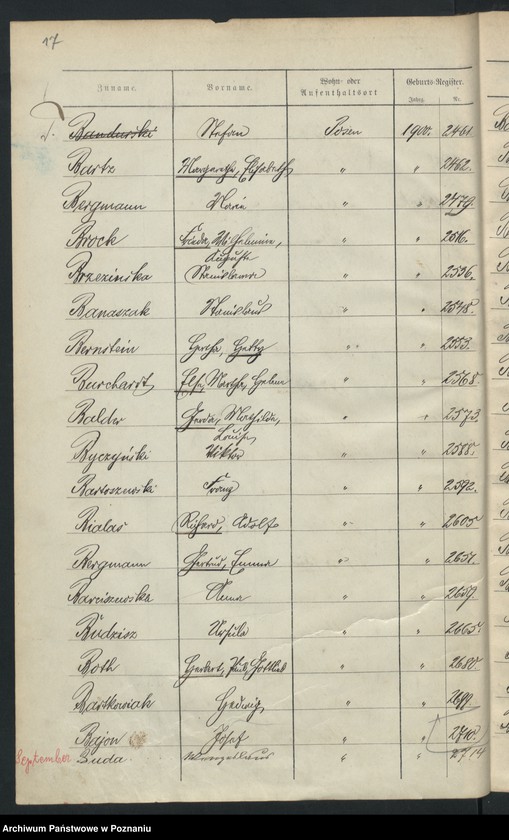 17
Zuname. Vorname. Wohn- oder Aufenthaltsort Geburts-Register.
Jahrg. Nr.
Bandurski Stefan Posen 1900. 2461.
Bartz Margarethe, Elisabeth " " 2462.
Bergmann Marie " " 2479.
Brock Frieda, Wilhelmine, " " 2516.
Auguste
Brzezińska Stanislawa " " 2536.
Banaszak Stanislaus " " 2548.
Bernstein Hertha, Hetty " " 2553.
Burchardt Else, Martha, Helene " " 2568.
Balder Gerda, Mathilde, " " 2573.
Louise
Byczyński Viktor " " 2588.
Bartoszewski Franz " " 2592.
Bialas Richard, Adolf " " 2605.
Bergmann Gertrud, Emma " " 2637.
Barciszewska Anna " " 2659.
Budzisz Ursula " " 2665.
Both Herbert, Paul, Gottlieb " " 2680.
Bartkowiak Hedwig " " 2699.
Bajon Josef " " 2710.
September Buda " " 2714
Archiwum Państwowe w Poznaniu